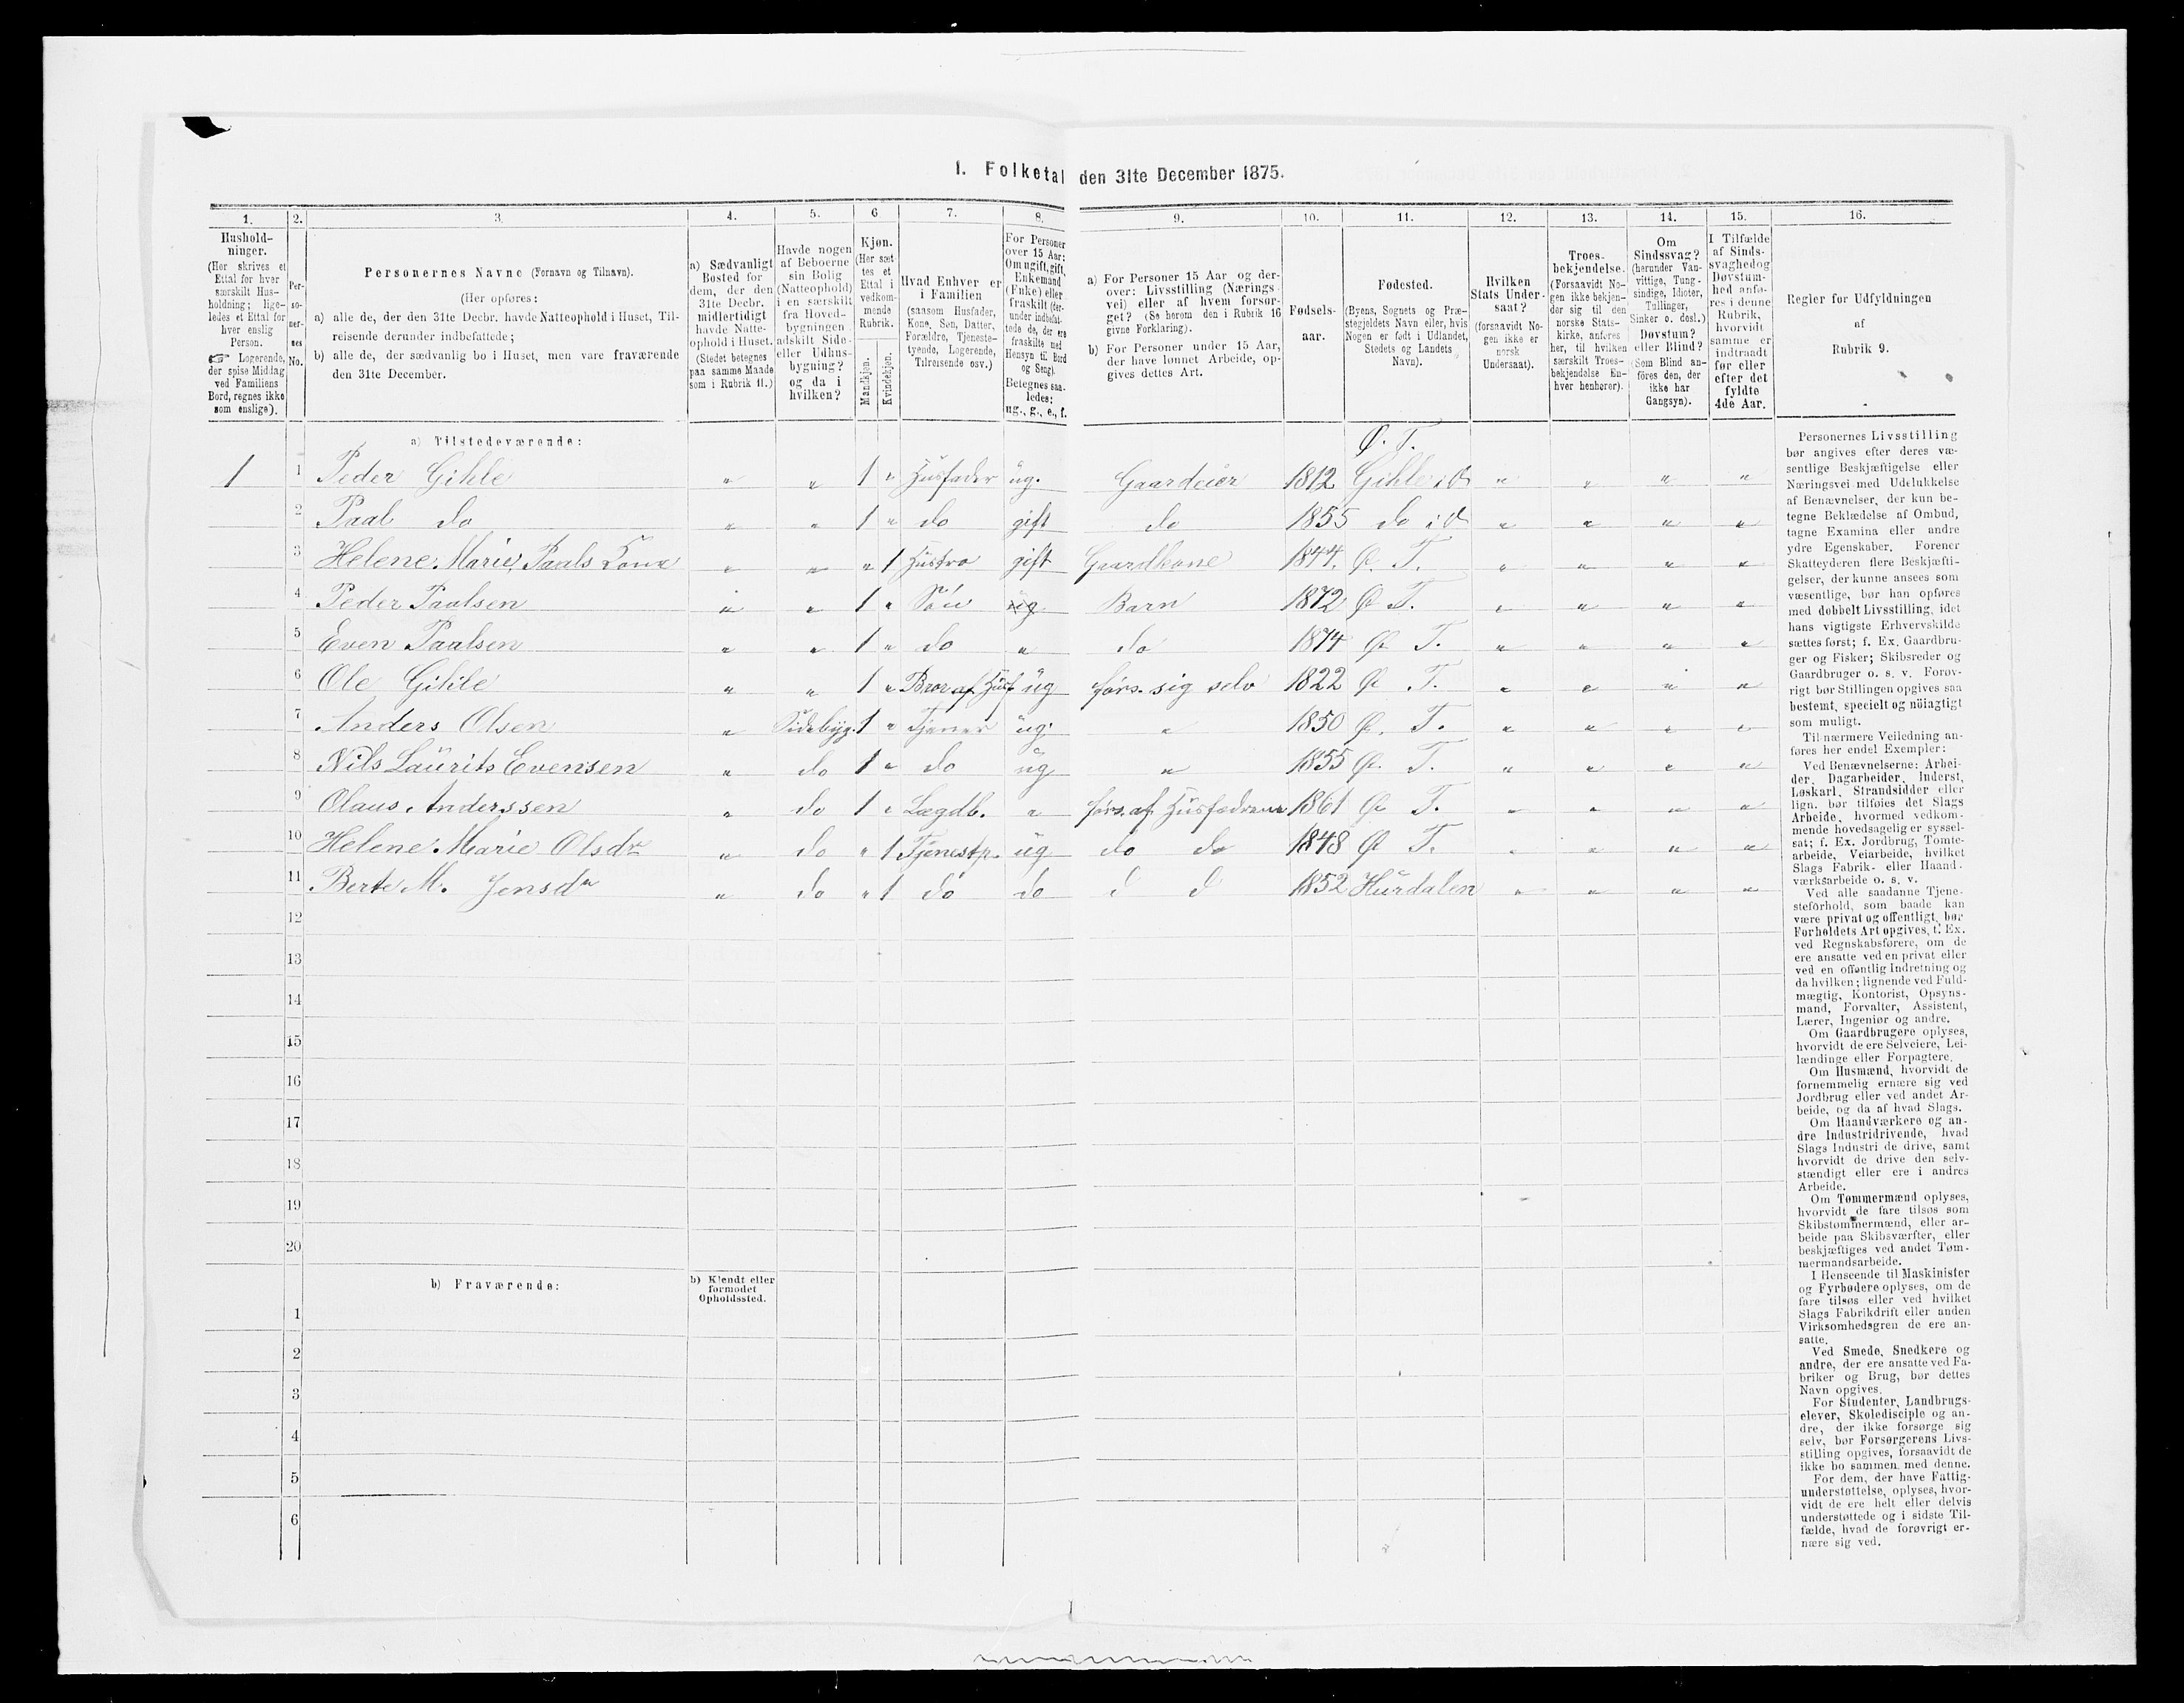 1. Folketal den 31te December 1875.
1. 2. 3. 4. 5. 6 7. 8. 9. 10. 11. 12. 13. 14. 15. 16.
Hushold-
ninger.
(Her skrives et
Ettal for hver
særskilt Hus-
holdning; lige-
ledes et Ettal for
hver enslig
Person.
☞ Logerende,
der spise Middag
ved Familiens
Bord, regnes ikke
som enslige).
Per-
so-
ner-
nes
No.
Personernes Navne (Fornavn og Tilnavn).
(Her opføres:
a) alle de, der den 31te Decbr. havde Natteophold i Huset, Til-
reisende derunder indbefattede;
b) alle de, der sædvanlig bo i Huset, men vare fraværende
den 31te December.
a) Sædvanligt
Bosted for
dem, der den
31te Decbr.
midlertidigt
havde Natte-
ophold i Huset.
(Stedet betegnes
paa samme Maade
som i Rubrik 11.)
Havde nogen
af Beboerne
sin Bolig
(Natteophold)
i en særskilt
fra Hoved-
bygningen
adskilt Side-
eller Udhus-
bygning?
og da i
hvilken?
Kjøn.
(Her sæt-
tes et
Ettal i
vedkom-
mende
Rubrik.
Mandkjøn.
Kvindekjøn.
Hvad Enhver er
i Familien
(saasom Husfader,
Kone, Søn, Datter,
Forældre, Tjeneste-
tyende, Logerende,
Tilreisende osv.)
For Personer
over 15 Aar:
Om ugift, gift,
Enkemand
(Enke) eller
fraskilt (der-
under indbefat-
tede de, der ere
fraskilte med
Hensyn til Bord
og Seng).
Betegnes saa-
ledes:
ug., g., e., f.
a) For Personer 15 Aar og der-
over: Livsstilling (Nærings-
vei) eller af hvem forsør-
get? (Se herom den i Rubrik 16
givne Forklaring).
b) For Personer under 15 Aar,
der have lønnet Arbeide, op-
gives dettes Art.
Fødsels-
aar.
Fødested.
(Byens, Sognets og Præ-
stegjeldets Navn eller, hvis
Nogen er født i Udlandet,
Stedets og Landets
Navn).
Hvilken
Stats Under-
saat?
(forsaavidt No-
gen ikke er
norsk
Undersaat).
Troes-
bekjendelse.
(Forsaavidt No-
gen ikke bekjen-
der sig til den
norske Stats-
kirke, anføres
her, til hvilken
særskilt Troes-
bekjendelse En-
hver henhører).
Om
Sindssvag?
(herunder Van-
vittige, Tung-
sindige, Idioter,
Tullinger,
Sinker o. desl.)
Døvstum?
eller Blind?
(Som Blind an-
föres den, der
ikke har
Gangsyn).
I Tilfælde
af Sinds-
svaghed og
Døvstum-
hed anfø-
res i denne
Rubrik,
hvorvidt
samme er
indtraadt
før eller
efter det
fyldte
4de Aar.
Regler for Udfyldningen
af
Rubrik 9.
a) Tilstedeværende:
Ø. T.
1 1 Peder Gihle " " 1 " Husfader ug. Gaardeier 1812 Gihle i Ø " " " "
2 Paal do " " 1 " do gift do 1855 do i Ø " " " "
3 Helene Marie, Paals Kone " " " 1 Hustro gift Gaardkone 1844. Ø. T. " " " "
4 Peder Paalsen " " 1 " Søn ug Barn 1872 Ø T. " " " "
5 Even Paalsen " " 1 " do " do 1874 Ø T. " " " "
6 Ole Gihle " " 1 " Bror af Husf ug førs. sig selv 1822 Ø T. " " " "
7 Anders Olsen " Sidebyg. 1 " Tjener ug. " 1850 Ø. T. " " " "
8 Nils Laurits Evensen " do 1 " do ug " 1855 Ø. T. " " " "
9 Olaus Anderssen " do 1 " Lægdb. " førs. af Husfædrene 1861 Ø T. " " " "
10 Helene Marie Olsdr " do " 1 Tjenestp. ug do do 1848 Ø T. " " " "
11 Berte M. Jensdr " do " 1 do do d d 1852 Hurdalen " " " "
12
13
14
15
16
17
18
19
20
b) Fraværende:
b) Kjendt eller
formodet
Opholdssted.
1
2
3
4
5
6
Personernes Livsstilling
bør angives efter deres væ-
sentlige Beskjæftigelse eller
Næringsvei med Udelukkelse
af Benævnelser, der kun be-
tegne Beklædelse af Ombud,
tagne Examina eller andre
ydre Egenskaber. Forener
Skatteyderen flere Beskjæfti-
gelser, der kunne ansees som
væsentlige, bør han opføres
med dobbelt Livsstilling, idet
hans vigtigste Erhvervskilde
sættes først; f. Ex. Gaardbru-
ger og Fisker; Skibsreder og
Gaardbruger o. s. v. Forøv-
rigt bør Stillingen opgives saa
bestemt, specielt og nöiagtigt
som muligt.
Til nærmere Veiledning an-
føres her endel Exempler:
Ved Benævnelserne: Arbei-
der, Dagarbeider, Inderst,
Løskarl, Strandsidder eller
lign. bør tilføies det Slags
Arbeide, hvormed vedkom-
mende hovedsagelig er syssel-
sat; f. Ex. Jordbrug, Tomte-
arbeide, Veiarbeide, hvilket
Slags Fabrik- eller Haand-
værksarbeide o. s. v.
Ved alle saadanne Tjene-
steforhold, som baade kan
være privat og offentligt, bør
Forholdets Art opgives, f. Ex.
ved Regnskabsførere, om de
ere ansatte ved en privat eller
ved en offentlig Indretning og
da hvilken; lignende ved Fuld-
mægtig, Kontorist, Opsyns-
mand, Forvalter, Assistent,
Lærer, Ingeniør og andre.
Om Gaardbrugere oplyses,
hvorvidt de ere Selveiere, Lei-
lændinge eller Forpagtere.
Om Husmænd, hvorvidt de
fornemmelig ernære sig ved
Jordbrug eller ved andet Ar-
beide, og da af hvad Slags.
Om Haandværkere og an-
dre Industridrivende, hvad
Slags Industri de drive, samt
hvorvidt de drive den selv-
stændigt eller ere i andres
Arbeide.
Om Tømmermænd oplyses,
hvorvidt de fare tilsøs som
Skibstømmermænd, eller ar-
beide paa Skibsværfter, eller
beskjæftiges ved andet Tøm-
mermandsarbeide.
I Henseende til Maskinister
og Fyrbødere oplyses, om de
fare tilsøs eller ved hvilket
Slags Fabrikdrift eller anden
Virksomhedsgren de ere an-
satte.
Ved Smede, Snedkere og
andre, der ere ansatte ved Fa-
briker og Brug, bør dettes
Navn opgives.
For Studenter, Landbrugs-
elever, Skoledisciple og an-
dre, der ikke forsørge sig
selv, bør Forsørgerens Livs-
stilling opgives, forsaavidt de
ikke bo sammen med denne.
For dem, der have Fattig-
understøttelse, oplyses, hvor-
vidt de ere helt eller delvis
understøttede og i sidste Til-
fælde, hvad de forøvrigt er-
nære sig ved.